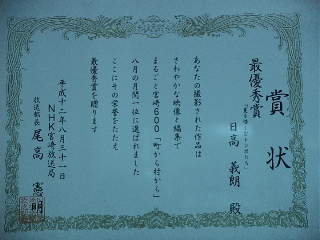 賞状
最優秀賞
日高 義朗 殿
あなたの撮影された作品は
さわやかな映像と編集で
まるごと宮崎600「町から村から」
八月の月間一位に選ばれました
ここにその栄誉をたたえ
最優秀賞を贈ります
平成十二年八月三十一日
NHK宮崎放送局
放送部長 尾高 憲明